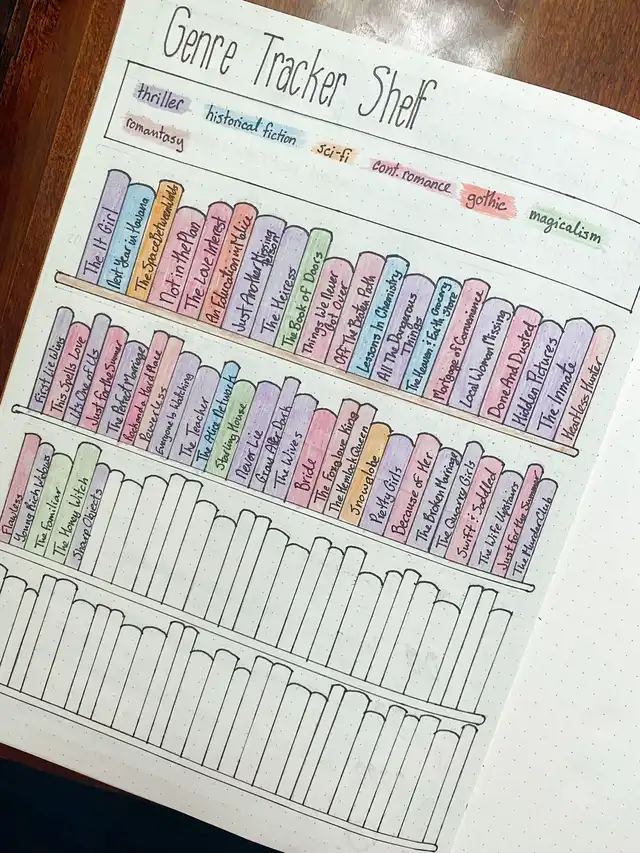 Genre Tracker Shelf
thriller
historical fiction
sci-fi
cont. romance
gothic
magicalism
romantasy
The It Girl
Next Year in Havana
The Space Between Worlds
Not in the Plan
The Love Interest
An Education in Malice
Just Another Missing Person
The Heiress
The Book of Doors
Things We Never Got Over
Off The Beaten Path
Lessons In Chemistry
All The Dangerous Things
The Heaven & Earth Grocery Store
Mortgage of Convenience
Local Woman Missing
Done And Dusted
Hidden Pictures
The Inmate
Heartless Hunter
First Lie Wins
This Spells Love
One of Us
Just For the Summer
The Perfect Marriage
Rock and a Hard Place
Powerless
Everyone is Watching
The Teacher
The Alice Network
Starling House
Never Lie
Grave After Dark
The Wives
Bride
The Foxglove King
The Hemlock Queen
Snowglobe
Pretty Girls
Because of Her
The Broken Marriage
The Quarry Girls
Swift & Saddled
The Wife Upstairs
Just For the Summer
The Murder Club
Flawless
Young Rich Widows
The Familiar
The Honey Witch
Sharp Objects